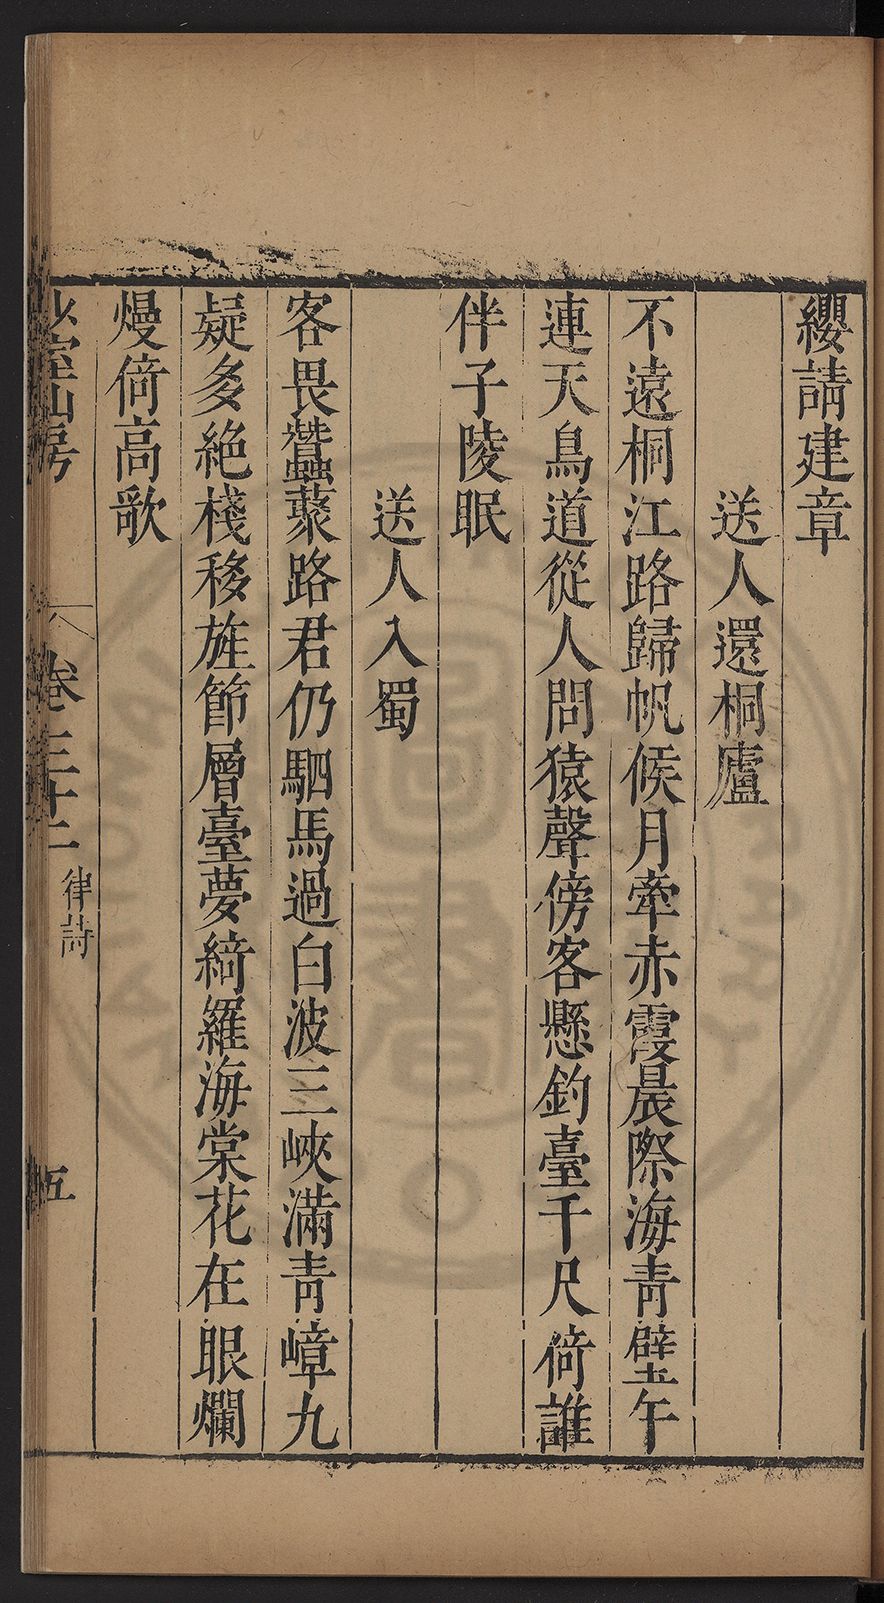 纓請建章
送人還桐廬
不遠桐江路歸帆候月牽赤霞晨際海青壁午
連天鳥道從人問猿聲傍客懸釣臺千尺倚誰
伴子陵眠
送人入蜀
客畏蠶叢路君仍駟馬過白波三峽滿青嶂九
疑多絶棧移旌節層臺夢綺羅海棠花在眼爛
熳倚高歌
少室山房
卷三十二
律詩
五